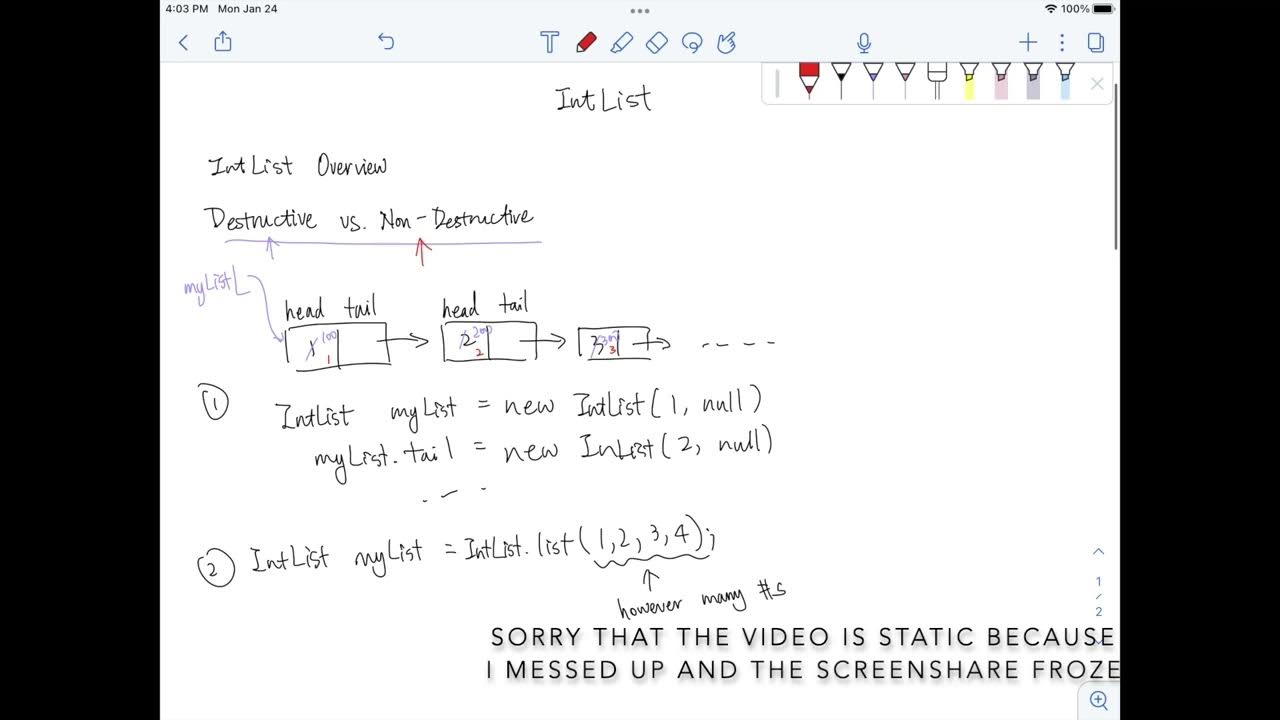 4:03 PM Mon Jan 24
100%
IntList
IntList Overview
Destructive vs. Non-Destructive
myListL
head tail head tail
1 100 1 2 200 2 3 300 3
① IntList myList = new IntList(1, null)
myList.tail = new InList(2, null)
② IntList myList = IntList.list(1,2,3,4);
however many #s
1
/
2
SORRY THAT THE VIDEO IS STATIC BECAUSE
I MESSED UP AND THE SCREENSHARE FROZE